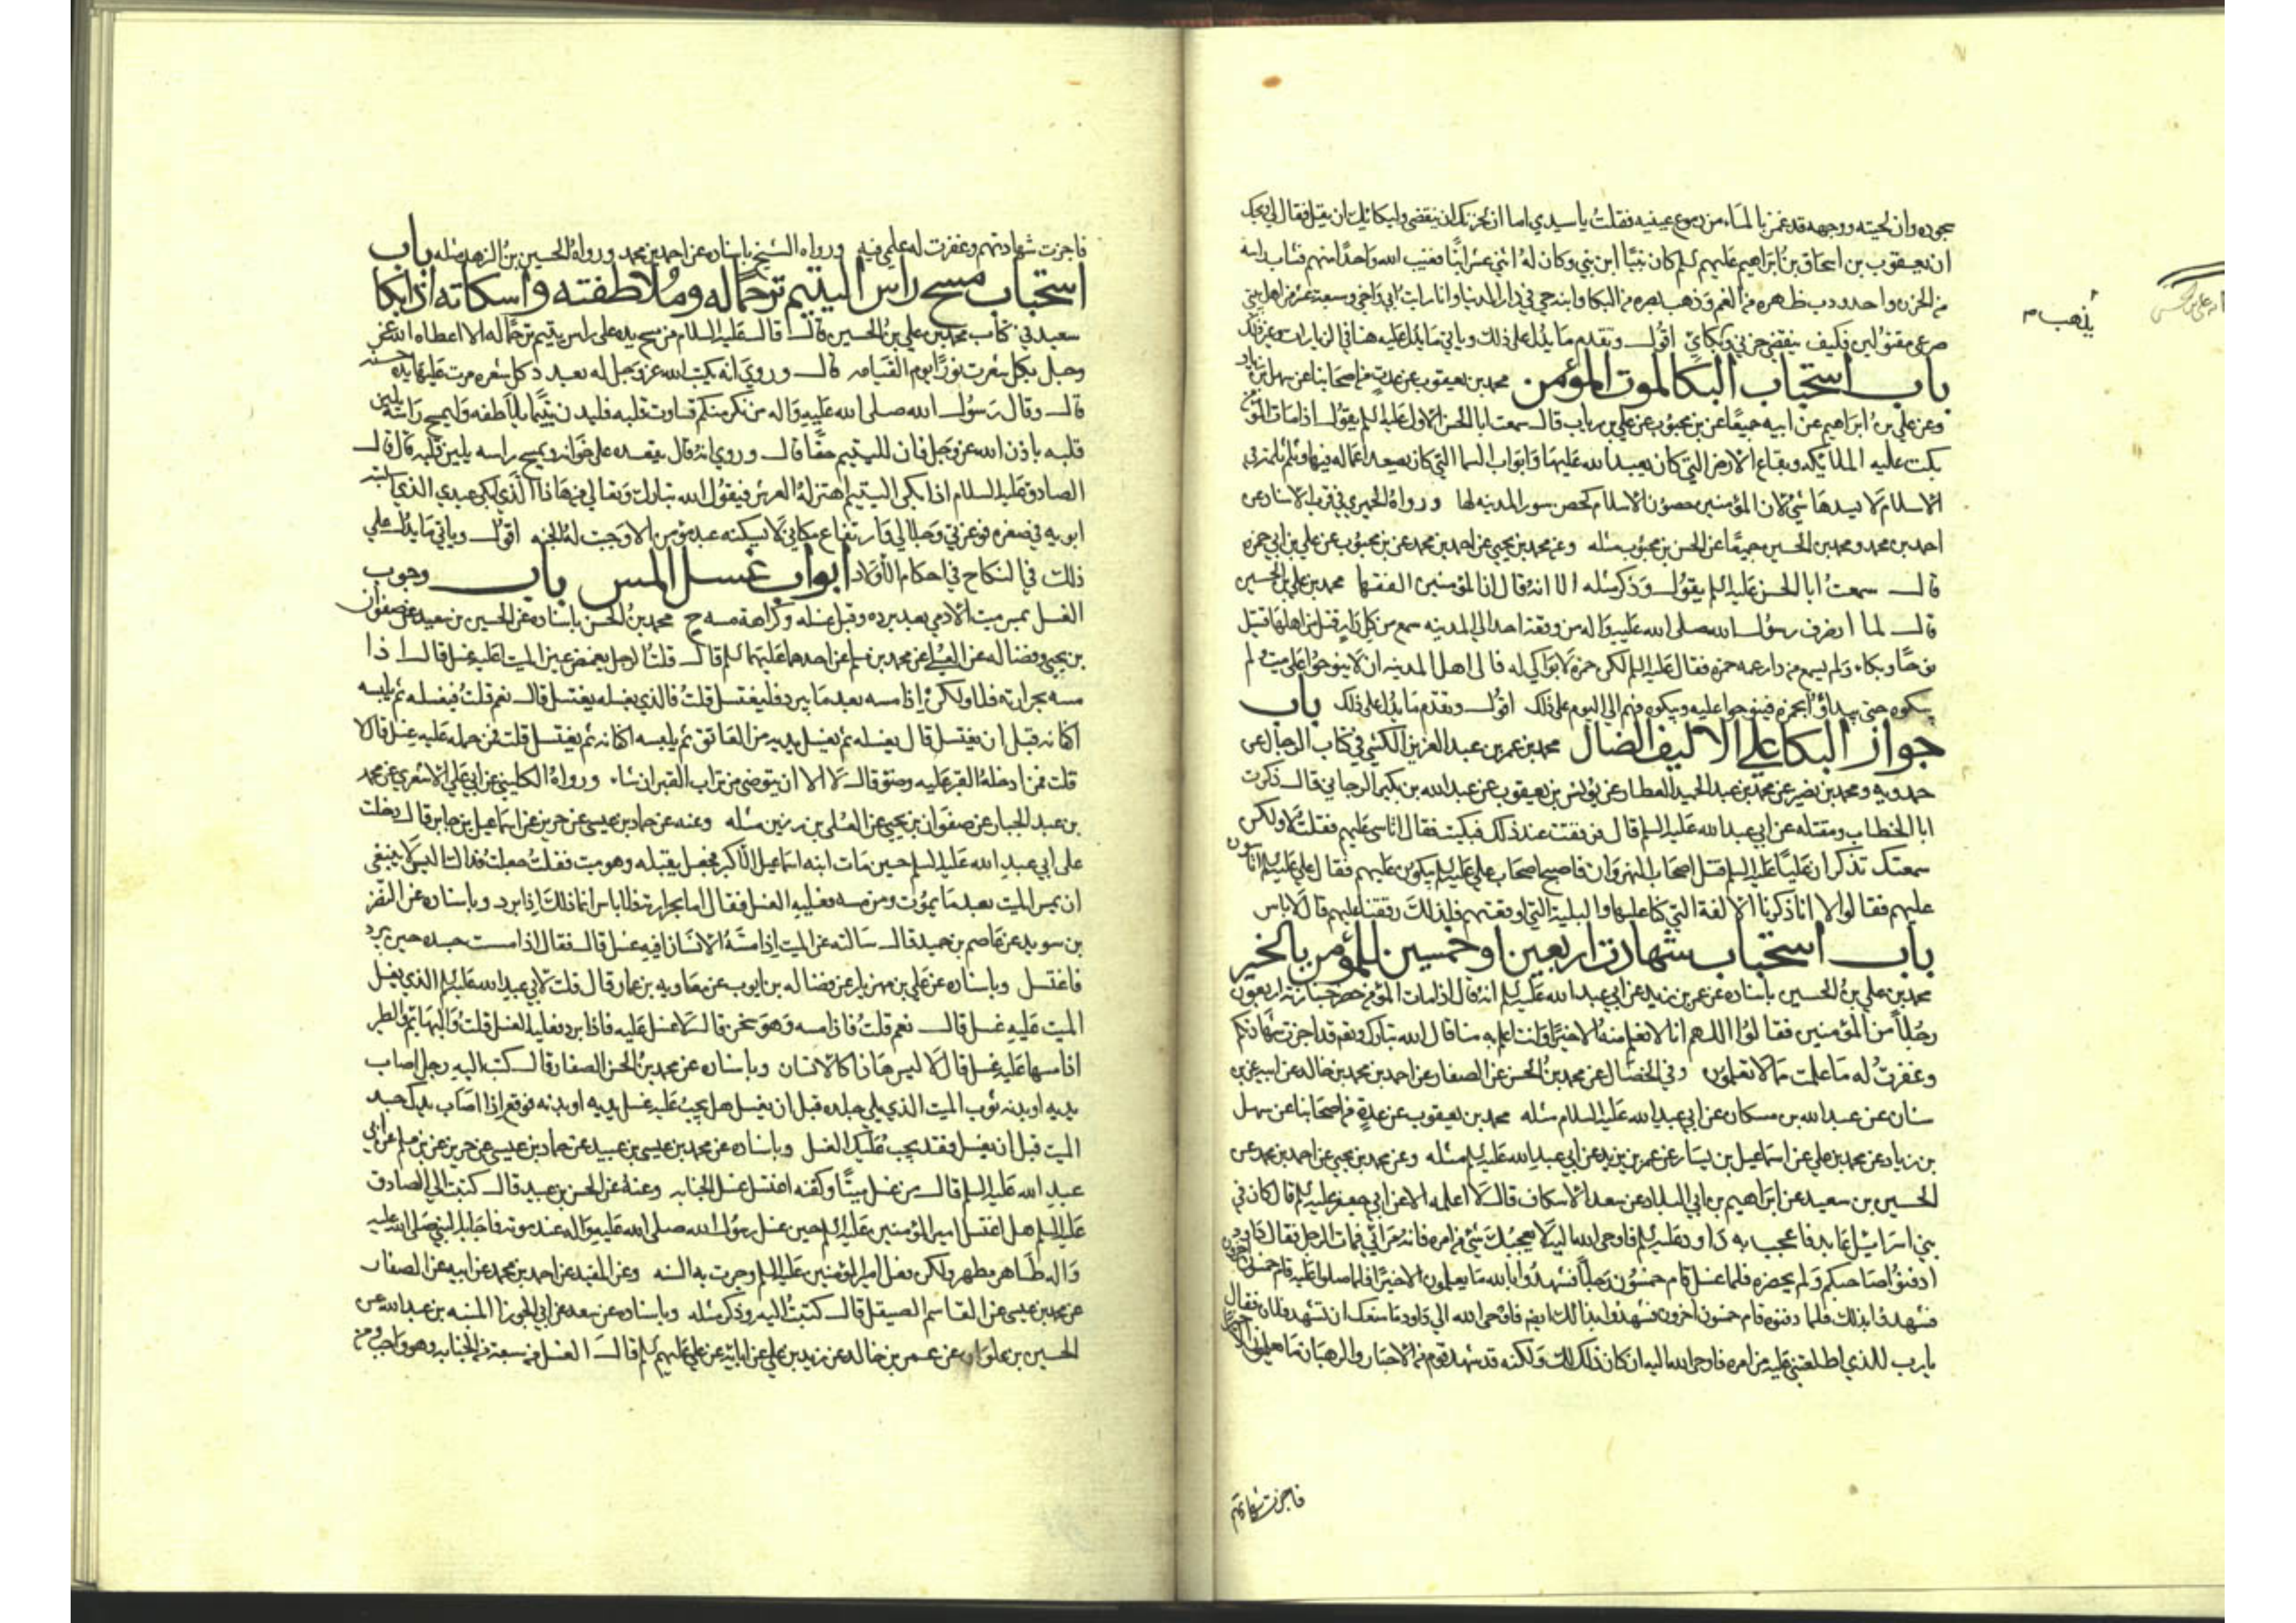 سجوده وان لحيته ووجهه قد غمر بالماء من دموع عينيه فقلت يا سيدي اما ان لحزنك ان ينقضي ولبكائك ان يقل فقال لي ويحك
ان يعقوب بن اسحاق بن ابراهيم عليهم السلم كان نبيا ابن نبي وكان له اثني عشر ابنا فغيب الله واحدا منهم فشاب راسه
من الحزن واحدودب ظهره من الغم وذهب بصره من البكا وابنه حي في دار الدنيا وانا رايت ابي واخي وسبعة عشر من اهل بيتي
يذهب م
صرعى مقتولين فكيف ينقضي حزني وبكائي اقول وتقدم ما يدل على ذلك وياتي ما يدل عليه هنا في الزيارات
باب استحباب البكا لموت المؤمن محمد بن يعقوب عن عدة من اصحابنا عن سهل بن زياد
وعن علي بن ابراهيم عن ابيه جميعا عن بن محبوب عن علي بن رياب قال سمعت ابا الحسن الاول عليه السلم يقول اذا مات المؤمن
بكت عليه الملائكة وبقاع الارض التي كان يعبد الله عليها وابواب السما التي كان يصعد اعماله فيها وثلم ثلمة في
الاسلام لا يسدها شي لان المؤمنين حصون الاسلام كحصن سور المدينه لها ورواه الحميري في قرب الاسناد عن
احمد بن محمد ومحمد بن الحسين جميعا عن الحسن بن محبوب مثله وعن محمد بن يحيى عن احمد بن محمد عن بن محبوب عن علي بن ابي حمزه
قال سمعت ابا الحسن عليه السلم يقول وذكر مثله الا انه قال ان المؤمنين الفقها محمد بن علي بن الحسين
قال لما انصرف رسول الله صلى الله عليه واله من وقعة احد الى المدينه سمع من كل دار قتل من اهلها قتيل
نوحا وبكاء ولم يسمع من دار عمه حمزه فقال عليه السلم لكن حمزه لا بواكي له فالى اهل المدينه ان لا ينوحوا على ميت ولم
يبكوه حتى يبداؤا بحمزه فينوحوا عليه ويبكوه فهم الى اليوم على ذلك اقول وتقدم ما يدل على ذلك باب
جواز البكا على الاليف الضال محمد بن عمر بن عبد العزيز الكشي في كتاب الرجال عن
حمدويه ومحمد بن نصير عن محمد بن عبد الحميد العطار عن يونس بن يعقوب عن عبد الله بن بكير الرجاني قال ذكرت
ابا الخطاب ومقتله عن ابي عبد الله عليه السلم قال فرققت عند ذلك فبكيت فقال اتاسى عليهم فقلت لا ولكن
سمعتك تذكر ان عليا عليه السلم قتل اصحاب النهروان فاصبح اصحاب علي عليه السلم يبكون عليهم فقال علي عليه السلم اتاسون
عليهم فقالوا لا انا ذكرنا الالفة التي كنا عليها والبلية التي اوقعتهم فلذلك رققنا عليهم قال لا باس
باب استحباب شهادة اربعين او خمسين للمؤمن بالخير
محمد بن علي بن الحسين باسناده عن عمر بن يزيد عن ابي عبد الله عليه السلم انه قال اذا مات المؤمن فحضر جنازته اربعون
رجلا من المؤمنين فقالوا اللهم انا لا نعلم منه الا خيرا وانت اعلم به منا قال الله تبارك وتعالى قد اجزت شهادتكم
وغفرت له ما علمت مما لا تعلمون وفي الخصال عن محمد بن الحسن عن الصفار عن احمد بن محمد بن خالد عن ابيه عن بن
سنان عن عبد الله بن مسكان عن ابي عبد الله عليه السلام مثله محمد بن يعقوب عن عدة من اصحابنا عن سهل
بن زياد عن محمد بن علي عن اسماعيل بن يسار عن عمر بن يزيد عن ابي عبد الله عليه السلم مثله وعن محمد بن يحيى عن احمد بن محمد عن
الحسين بن سعيد عن ابراهيم بن ابي البلاد عن سعد الاسكاف قال لا اعلمه الا عن ابي جعفر عليه السلم قال كان في
بني اسرائيل عابد فاعجب به داود عليه السلم فاوحى الله اليه لا يعجبك شي من امره فانه مرائي فمات الرجل فقال داود
ادفنوا صاحبكم ولم يحضره فلما غسل قام خمسون رجلا فشهدوا بالله ما يعلمون الا خيرا فلما صلوا عليه قام خمسون اخرون
فشهدوا بذلك فلما دفنوه قام خمسون اخرون فشهدوا بذلك ايضا فاوحى الله الى داود ما منعك ان تشهد فلانا فقال
يا رب للذي اطلعتني عليه من امره فاوحى الله اليه ان كان ذلك كذلك ولكنه قد شهد قوم من الاحبار والرهبان ما يعلمون الا خيرا
فاجزت شهادتهم
فاجزت شهادتهم وغفرت له علمي فيه ورواه الشيخ باسناده عن احمد بن محمد ورواه الحسين بن سعيد في الزهد مثله باب
استحباب مسح راس اليتيم ترحما له وملاطفته واسكاته اذا بكا
سعيد في كتاب محمد بن علي بن الحسين قال قال عليه السلام من مسح يده على راس يتيم ترحما له الا اعطاه الله عز
وجل بكل شعرة نورا يوم القيامه قال وروي انه يكتب الله عز وجل له بعدد كل شعره مرت عليها يده حسنه
قال وقال رسول الله صلى الله عليه واله من انكر منكم قساوت قلبه فليدن يتيما فيلاطفه وليمسح راسه يلين
قلبه باذن الله عز وجل فان لليتيم حقا قال وروي انه قال يقعده على خوانه ويمسح راسه يلين قلبه قال قال
الصادق عليه السلام اذا بكى اليتيم اهتز له العرش فيقول الله تبارك وتعالى من هذا الذي ابكى عبدي الذي سلبته
ابويه في صغره فوعزتي وجلالي وارتفاع مكاني لا يسكته عبد مؤمن الا وجبت له الجنه اقول وياتي ما يدل على
ذلك في النكاح في احكام الاولاد ابواب غسل المس باب وجوب
الغسل بمس ميت الادمي بعد برده وقبل غسله وكراهة مسه ح محمد بن الحسن باسناده عن الحسين بن سعيد عن صفوان
بن يحيى وفضاله عن العلا عن محمد بن مسلم عن احدهما عليهما السلم قال قلت الرجل يغمض عين الميت اعليه غسل قال اذا
مسه بحرارته فلا ولكن اذا مسه بعد ما يبرد فليغتسل قلت فالذي يغسله يغتسل قال نعم قلت فيغسله ثم يلبسه
اكفانه قبل ان يغتسل قال يغسله ثم يغسل يديه من العاتق ثم يلبسه اكفانه ثم يغتسل قلت فمن حمله عليه غسل قال لا
قلت فمن ادخله القبر عليه وضوء قال لا الا ان يتوضى من تراب القبر ان شاء ورواه الكليني عن ابي علي الاشعري عن محمد
بن عبد الجبار عن صفوان بن يحيى عن العلى بن رزين مثله وعنه عن حماد بن عيسى عن حريز عن اسماعيل بن جابر قال دخلت
على ابي عبد الله عليه السلم حين مات ابنه اسماعيل الاكبر فجعل يقبله وهو ميت فقلت جعلت فداك اليس لا ينبغي
ان يمس الميت بعد ما يموت ومن مسه فعليه الغسل فقال اما بحرارته فلا باس انما ذلك اذا برد وباسناده عن النضر
بن سويد عن عاصم بن حميد قال سالته عن الميت اذا مسه الانسان افيه غسل قال فقال اذا مسست جسده حين يبرد
فاغتسل وباسناده عن علي بن مهزيار عن فضاله بن ايوب عن معاويه بن عمار قال قلت لابي عبد الله عليه السلم الذي يغسل
الميت عليه غسل قال نعم قلت فاذا مسه وهو سخن قال لا غسل عليه فاذا برد فعليه الغسل قلت والبهايم والطير
اذا مسها عليه غسل قال لا ليس هذا كالانسان وباسناده عن محمد بن الحسن الصفار قال كتبت اليه رجل اصاب
يديه او بدنه ثوب الميت الذي يلي جلده قبل ان يغسل هل يجب عليه غسل يديه او بدنه فوقع اذا اصاب يدك جسد
الميت قبل ان يغسل فقد يجب عليك الغسل وباسناده عن محمد بن عيسى بن عبيد عن حماد بن عيسى عن حريز عن بن مسلم عن ابي
عبد الله عليه السلم قال من غسل ميتا وكفنه اغتسل غسل الجنابه وعنه عن الحسن بن عبيد قال كتبت الى الصادق
عليه السلم هل اغتسل امير المؤمنين عليه السلم حين غسل رسول الله صلى الله عليه واله عند موته فاجابه النبي صلى الله عليه
واله طاهر مطهر ولكن فعل امير المؤمنين عليه السلم وجرت به السنه وعن المفيد عن احمد بن محمد عن ابيه عن الصفار
عن محمد بن عيسى عن القاسم الصيقل قال كتبت اليه وذكر مثله وباسناده عن سعد عن ابي الجوزا المنبه بن عبد الله عن
الحسين بن علوان عن عمر بن خالد عن زيد بن علي عن ابائه عن علي عليهم السلم قال الغسل من سبعة من الجنابه وهو واجب ومن